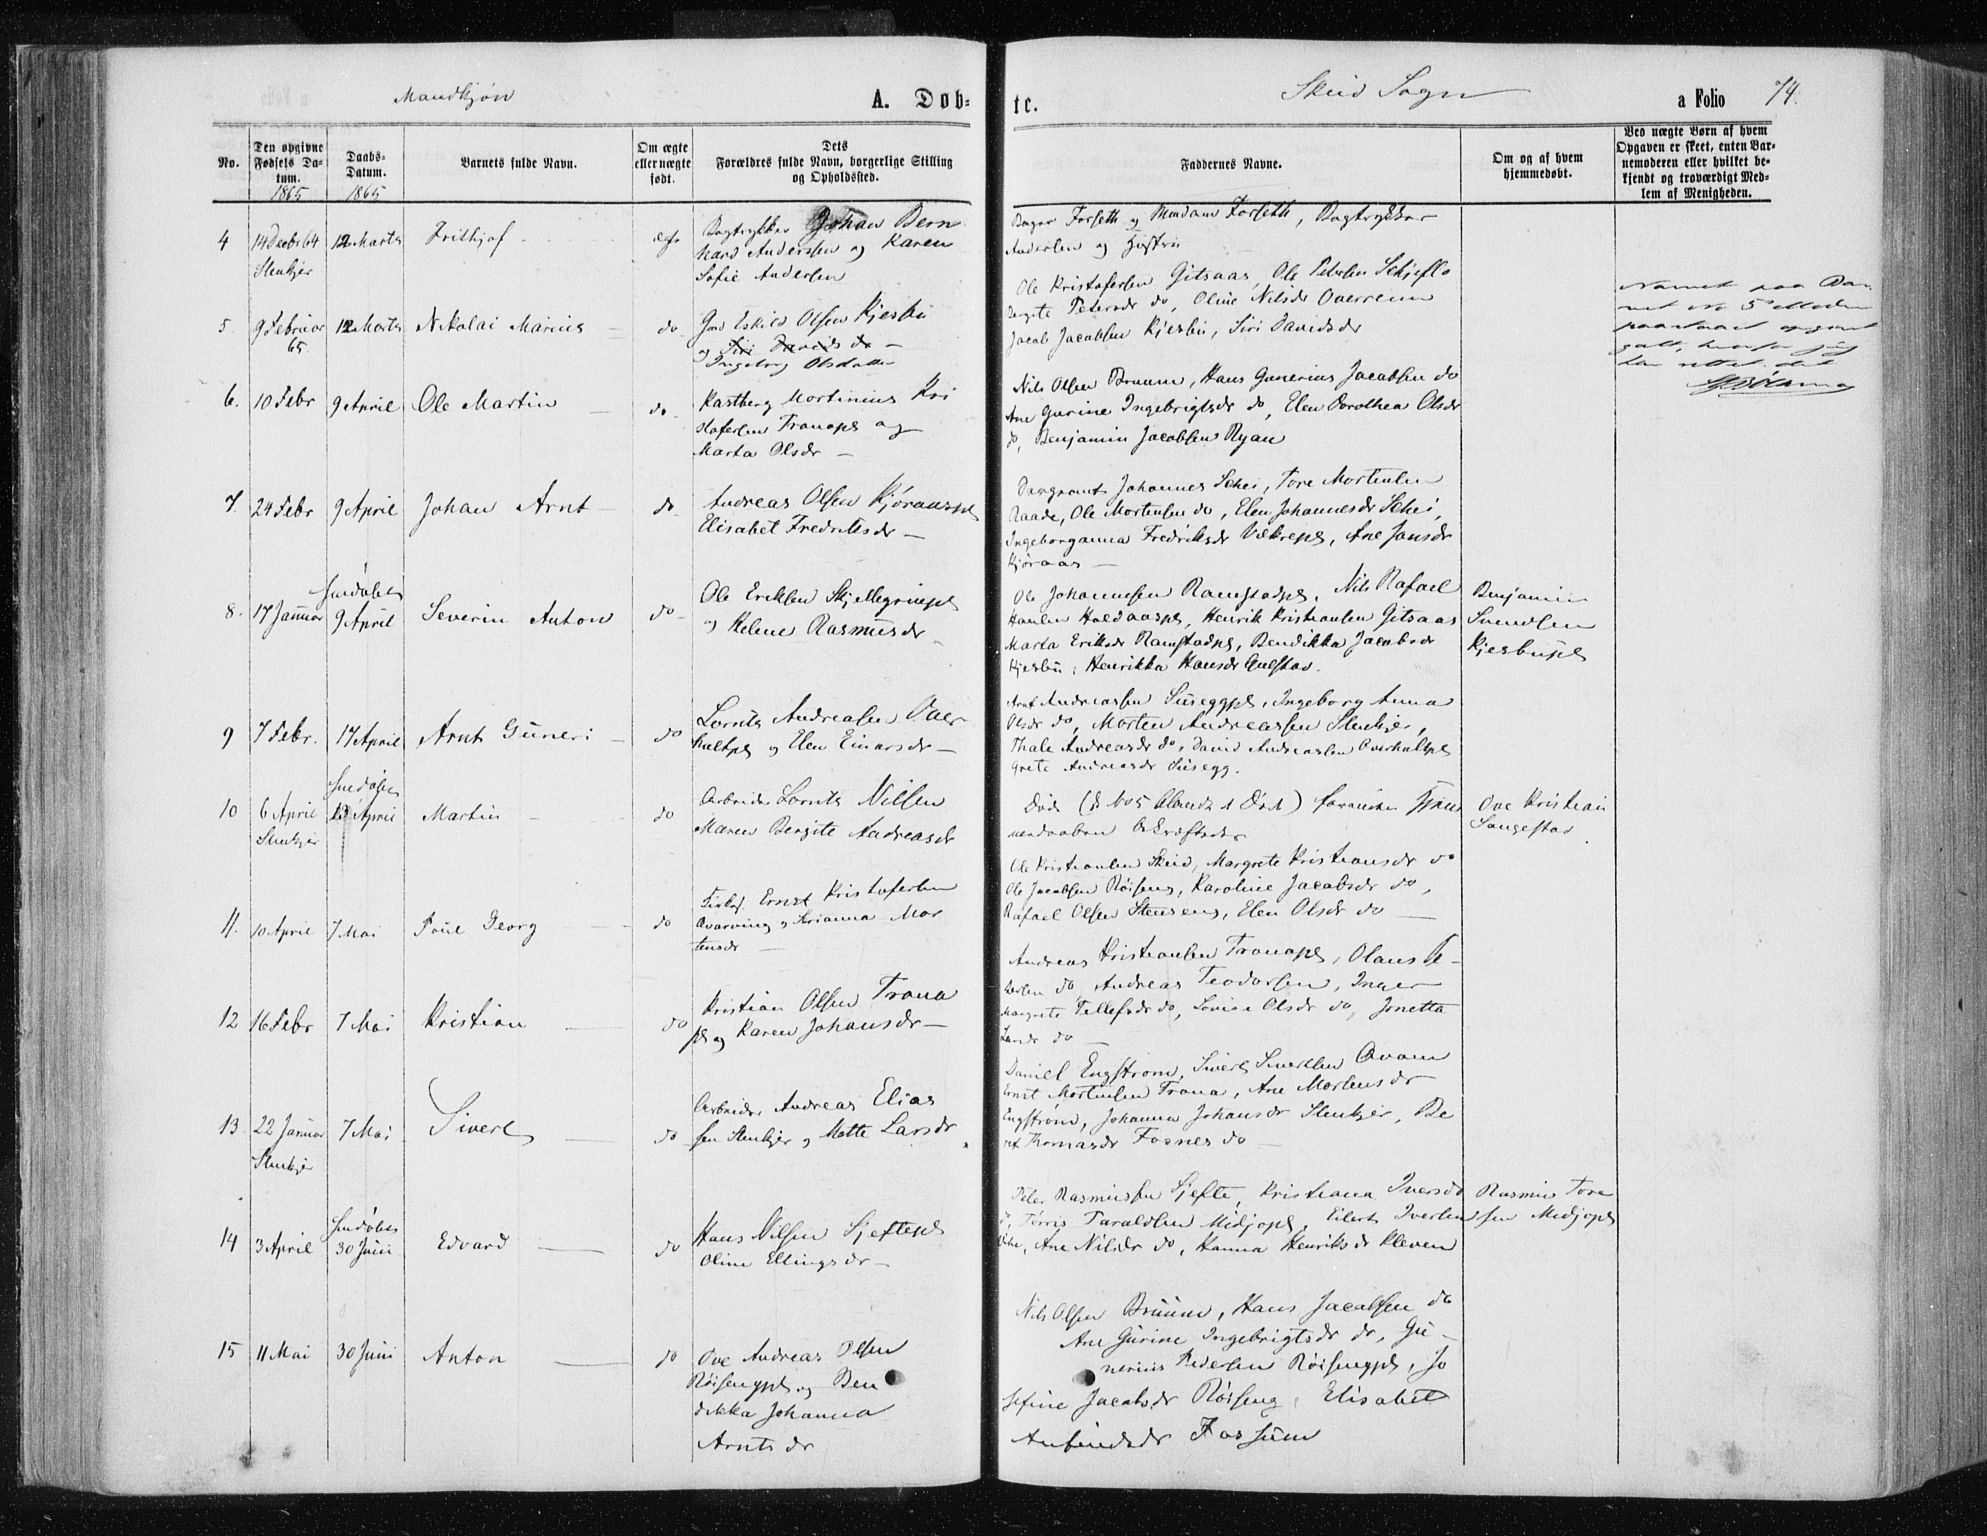 Mandkjøn
A. Døb-
te.
Skeid Sogn
a Folio 74.
No.
Den opgivne Fødsels Da-
tum.
1865
Daabs-
Datum.
1865
Barnets fulde Navn.
Om ægte
eller uægte
født.
Dets
Forældres fulde Navn, borgerlige Stilling
og Opholdssted.
Faddernes Navne.
Om og af hvem
hjemmedøbt.
Ved uægte Børn af hvem
Opgaven er skeet, enten Bar-
nemoderen eller hvilket be-
kjendt og troværdigt Med-
lem af Menigheden.
4
14 Decbr 64
Stenkjer
12 Marts
Frithjof
ægte
Bogtrykker Johan Bern
hard Anderssen og Karen
Sofie Andersen
Bager Forseth og Madam Forseth, Bogtrykker
Andersen og Hustru
5.
9 Februar
65.
12 Marts
Nikolai Marius
do
Gmd Eskild Olsen Kjesbu
og Siri Davids dr
Ingeborg Olsdatter
Ole Kristofersen Gitsaas, Ole Petersen Skjeflo
Petersdr do, Oline Nilsdr Overrein
Jacob Jacobsen Kjesbu, Siri Davidsdr
Navnet paa Bar
net No 5
6.
10 Febr
9 April
Ole Martin
do
Martinius Kri
stofersen Tranapl og
Marta Olsdr
Nils Olsen Bruum, Hans Gunerius Jacobsen do
Ane Gurine Ingebrigtsdr do, Elen Dorothea Olsdr
do, Benjamin Jacobsen Ryan
7.
24 Febr
9 April
Johan Arnt
do
Andreas Olsen Kjøraaspl
Elisabet Fredriksdr
Johannes Schei, Tore Mortensen
Raade, Ole Mortensen do, Elen Johannesdr Schei,
Ingeborganna Fredriksdr Vækrepl, Ane Jonsdr
Kjøraas
8.
17 Januar
Inddøbt
9 April
Severin Anton
do
Ole Eriksen Skjellegrinpl
og Helene Rasmusdr
Ole Johannesen Ramstadpl, Nils Rafael
Hansen Holdaaspl, Henrik Kristiansen Gitsaas
Marta Eriksdr Ramstadpl, Bendikka Jacobsdr
Kjesbu, Henrikka Hansdr
Benjamin
Svendsen
Kjesbupl
9
7 Febr.
17 April
Arnt Guneri
do
Lornts Andreasen Over
haltpl og Elen Einarsdr
Arnt Andreassen Suseggpl, Ingeborg Anna
Olsdr do, Morten Andreassen Stenkjer,
Thale Andreasdr do, David Andreassen Overhaltpl
Grete Andreasdr Susegg.
10
6 April
Stenkjer
Inddøbt
April
Martin
do
Arbeider Lornts Nilsen
Maren Bergite Andreasdr
Død
Ove Kristian
Saugestad
11.
10 April
7 Mai
Paul Georg
do
Ernst Kristofersen
og Arianna Mor
tensdr
Ole Kristiansen Skeid, Margrete Kristiansdr do
Ole Jacobsen Røiseng, Karoline Jacobsdr do,
Rafael Olsen Stenseng, Elen Olsdr do
12
16 Febr
7 Mai
Kristian
do
Kristian Olsen Trana
pl og Karen Johansdr
Andreas Kristiansen Tranapl, Olaus Pe-
tersen do Andreas Teodorsen, Inger
Margrete Tellefsdr do, Lovise Olsdr do, Jonetta
Larsdr do
13.
22 Januar
Stenkjer
7 Mai
Sivert
do
Arbeider Andreas Elias
sen Stenkjer og Mette Larsdr
Daniel Engstrøm, Sivert Sivertsen Qvam
Ernst Mortensen Trana, Ane Mortensdr
Engstrøm, Johanna Johansdr Stenkjer, Be
ret Thomasdr Fosnes do
14
3 April
Inddøbt
30 Juni
Edvard
do
Hans Nilsen Sjeftepl
Oline Ellingsdr
Peter Rasmussen Sjefte, Kristiana Iversdr
do, Tørris Taraldsen Midjopl, Eilert Iversen
Ane Nilsdr do, Hanna Henriksdr Kleven
Rasmus Tore
sen Midjopl
15
11 Mai
30 Juni
Anton
do
Ove Andreas Olsen
Røisengpl og Ben
dikka Johanna
Arntsdr
Nils Olsen Bruum, Hans Jacobsen do
Ane Gurine Ingebrigtsdr do, Gu-
nerius Pedersen Røisengpl, Jo
sefine Jacobsdr Røiseng, Elisabet
Anfindsdr Fossum